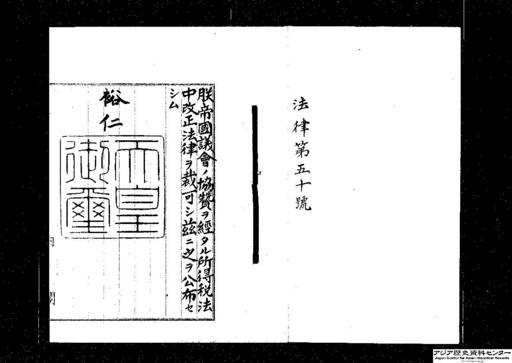 法律第五十號
朕帝國議會ノ協贊ヲ經タル所得税法
中改正法律ヲ裁可シ茲ニ之ヲ公布セ
シム
裕仁
天皇
御璽
アジア歴史資料センター
Japan Center for Asian Historical Records